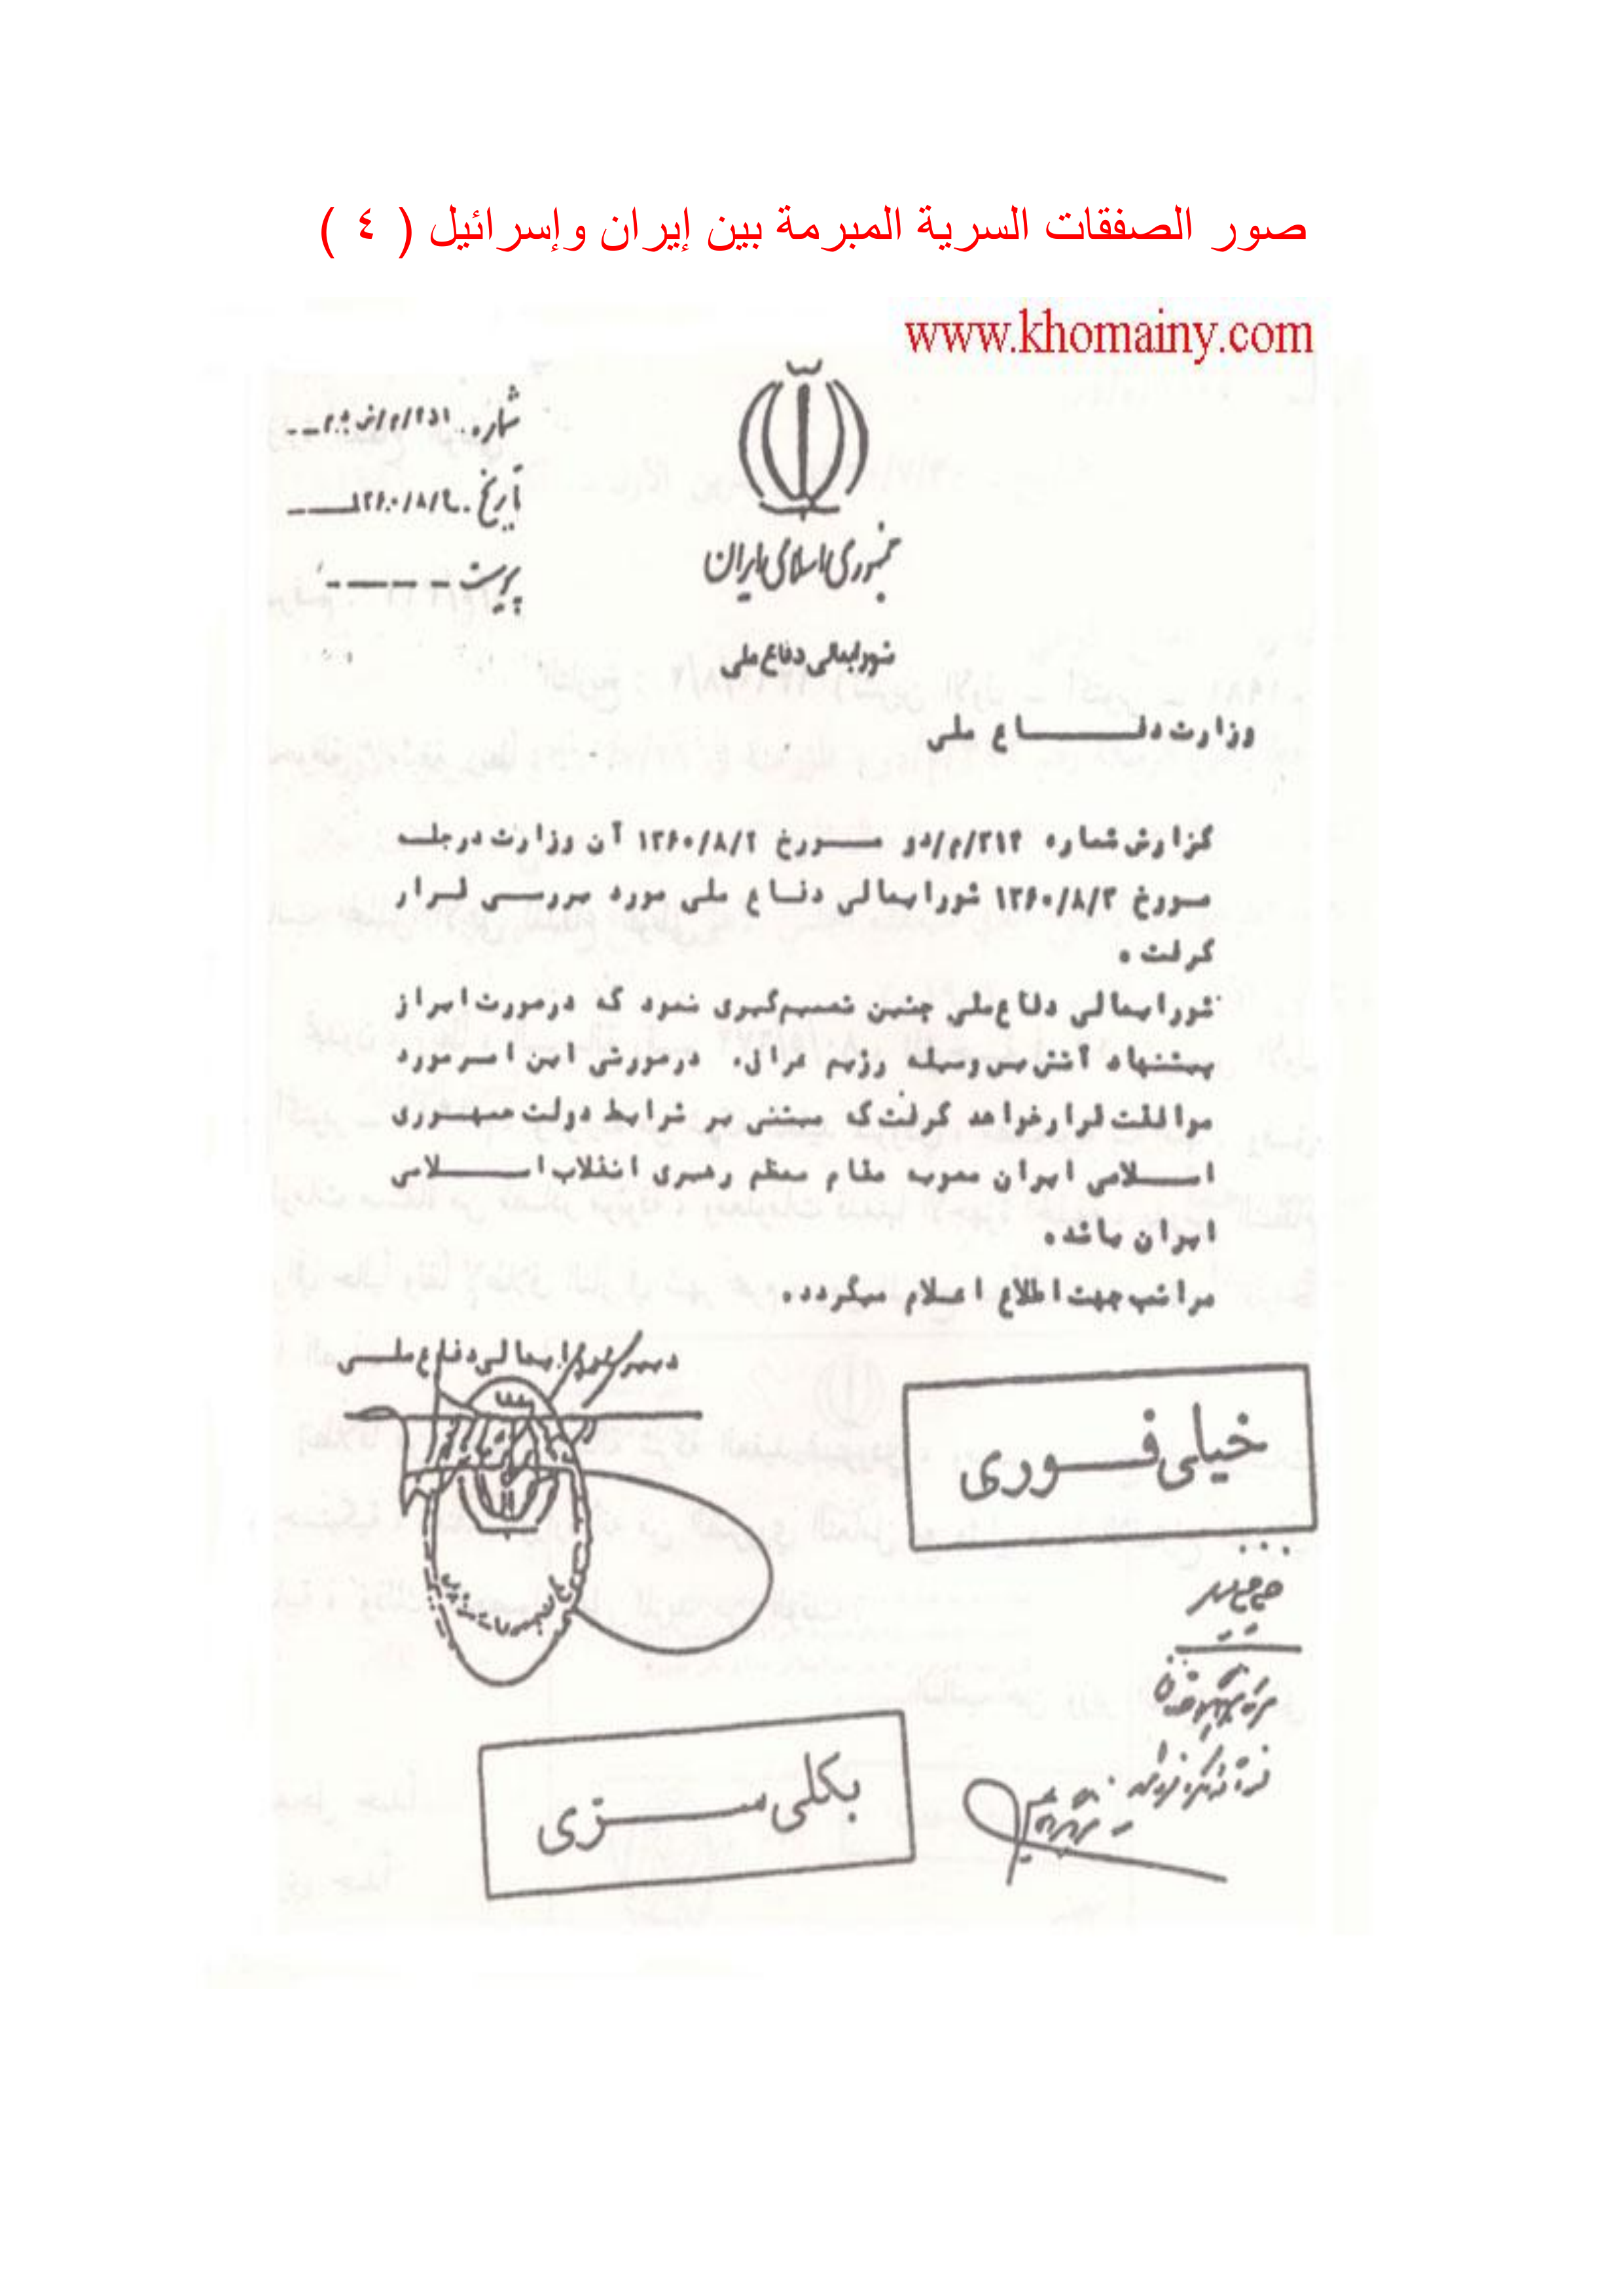 صور الصفقات السرية المبرمة بين إيران وإسرائيل ( ٤ )
www.khomainy.com
شماره
تاریخ ۱۳۶۰/۸/
پیوست
جمهوری اسلامی ایران
شورایعالی دفاع ملی
وزارت دفاع ملی
گزارش شماره ۳۱۴/م/دو مورخ ۱۳۶۰/۸/۲ آن وزارت در جلسه
مورخ ۱۳۶۰/۸/۳ شورایعالی دفاع ملی مورد بررسی قرار
گرفت ۰
شورایعالی دفاع ملی چنین تصمیم‌گیری نمود که در صورت ابراز
پیشنهاد آتش بس وسیله رژیم عراق، در صورتی این امر مورد
موافقت قرار خواهد گرفت که مبتنی بر شرایط دولت جمهوری
اسلامی ایران مصوبه مقام معظم رهبری انقلاب اسلامی
ایران باشد۰
مراتب جهت اطلاع اعلام میگردد۰
دبیر شورایعالی دفاع ملی
خیلی فوری
بکلی سرّی